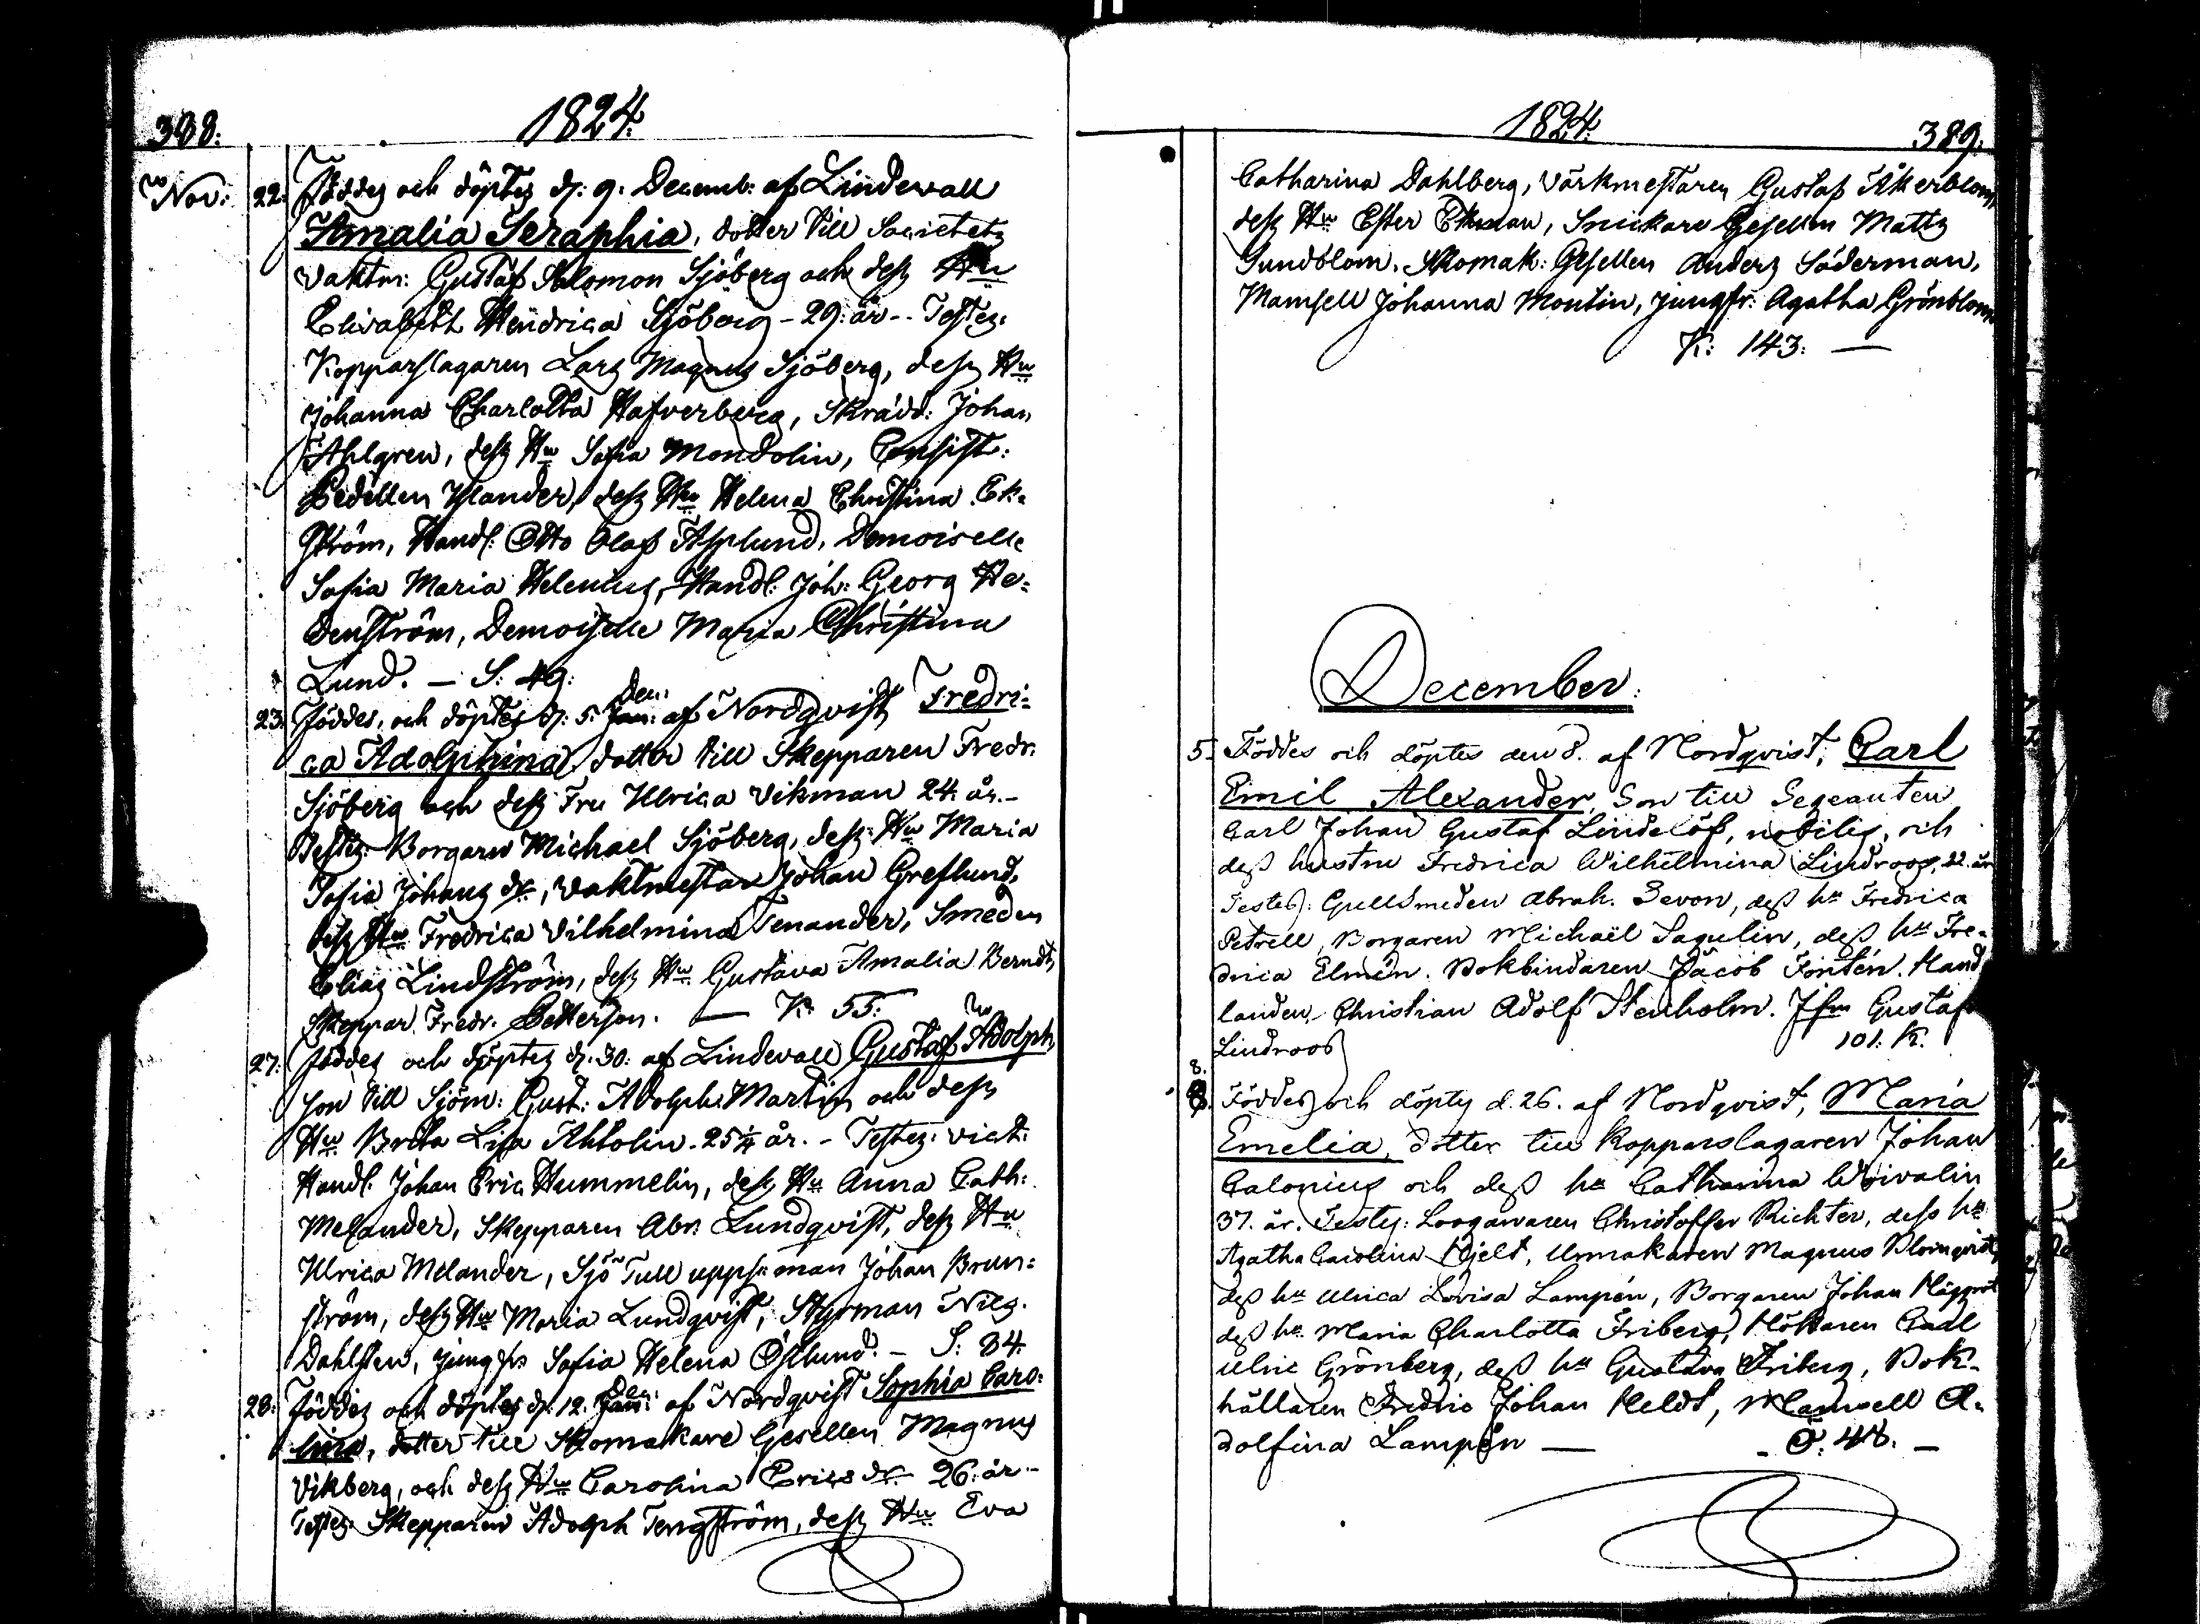 388.
1824.
Nov:
22. Föddes och döptes d: 9. Decemb: af Lindewall
Amalia Seraphia, dotter till Societets
Vaktm: Gustaf Salomon Sjöberg och dess Hu
Elisabeth Hendrica Sjöberg - 29: år - Testes:
Kopparslagaren Lars Magnus Sjöberg, dess Hu
Johanna Charlotta Hafverberg, Skrädd: Johan
Ahlgren, dess Hu Sofia Mondolin, Consist:
Pedellen Ylander, dess Hu Helena Christina Ek=
ström, Handl: Otto Olof Asplund, Demoiselle
Sofia Maria Helenius, Handl: Joh: Georg He=
denström, Demoiselle Maria Christina
Lund. — S: 49:
23. Föddes, och döptes d: 5. Dec: af Nordqvist Fredri=
ca Adolphina, dotter till Skepparen Fredr:
Sjöberg och dess Fru Ulrica Vikman 24 år. -
Testes: Borgaren Michael Sjöberg, dess Hu Maria
Sofia Johans dr, Vaktmestar Johan Greflund,
dess Hu Fredrica Vilhelmina Tenander, Smeden
Elias Lindström, dess Hu Gustava Amalia Berndt,
Skeppar Fredr. Petterson. — K: 55:
27: Föddes och döptes d: 30: af Lindevall Gustaf Adolph,
son till Sjöm: Gust: Adolph Martin och dess
Hu Brita Lisa Ahlolin. 25 1/4 år. - Testes: Vict:
Handl: Johan Eric Hummelin, dess Hu Anna Cath:
Melander, Skepparen Abr: Lundqvist, dess Hu
Ulrica Melander, Sjö Tull upps: man Johan Brun=
ström, dess Hu Maria Lundqvist, Styrman Nils
Dahlsten, jungfr Sofia Helena Östlund. - S: 84.
28: Föddes och döptes d: 12. Dec: af Nordqvist Sophia Caro=
lina, dotter till Skomakare Gesellen Magnus
Vikberg, och dess Hu Carolina Erics dr 26: år -
Testes: Skepparen Adolph Tengström, dess Hu Eva
1824.
389.
Catharina Dahlberg, Värkmestaren Gustaf Åkerblom,
dess Hu Ester Ekman, Snickare Gesellen Matts
Sundblom. Skomak: Gesellen Anders Söderman,
Mamsell Johanna Montin, jungfr: Agatha Grönblom
K: 143: —
December:
5. Föddes och döptes den 8. af Nordqvist, Carl
Emil Alexander, Son till Segeanten
Carl Johan Gustaf Lindelöf, nobilis, och
dess hustru Fredrica Wilhelmina Lindroos, 22. år
Testes: Gullsmeden Abrah. Sevon, dess hu Fredrica
Petrell, Borgaren Michaël Sagulin, dess hu Fre=
drica Elmén. Bokbindaren Jacob Fontén. Hand
landen Christian Adolf Stenholm. Jfru Gustaf
Lindroos 101. K.
8. Föddes och döptes d. 26. af Nordqvist, Maria
Emelia, dotter till Kopparslagaren Johan
Calonius och dess hu Catharina Woivalin
37. år. Testes: Loogarvaren Christoffer Richter, dess hu
Agatha Carolina Hjelt, Urmakaren Magnus Blomqvist,
dess hu Ulrica Lovisa Lampén, Borgaren Johan Häggrot
dess hu Maria Charlotta Friberg, Hökaren Carl
Ulric Grönberg, dess hu Gustava Friberg, Bok-
hållaren Fredric Johan Heldt, Mamsell A=
dolfina Lampén — - Ö: 48. —